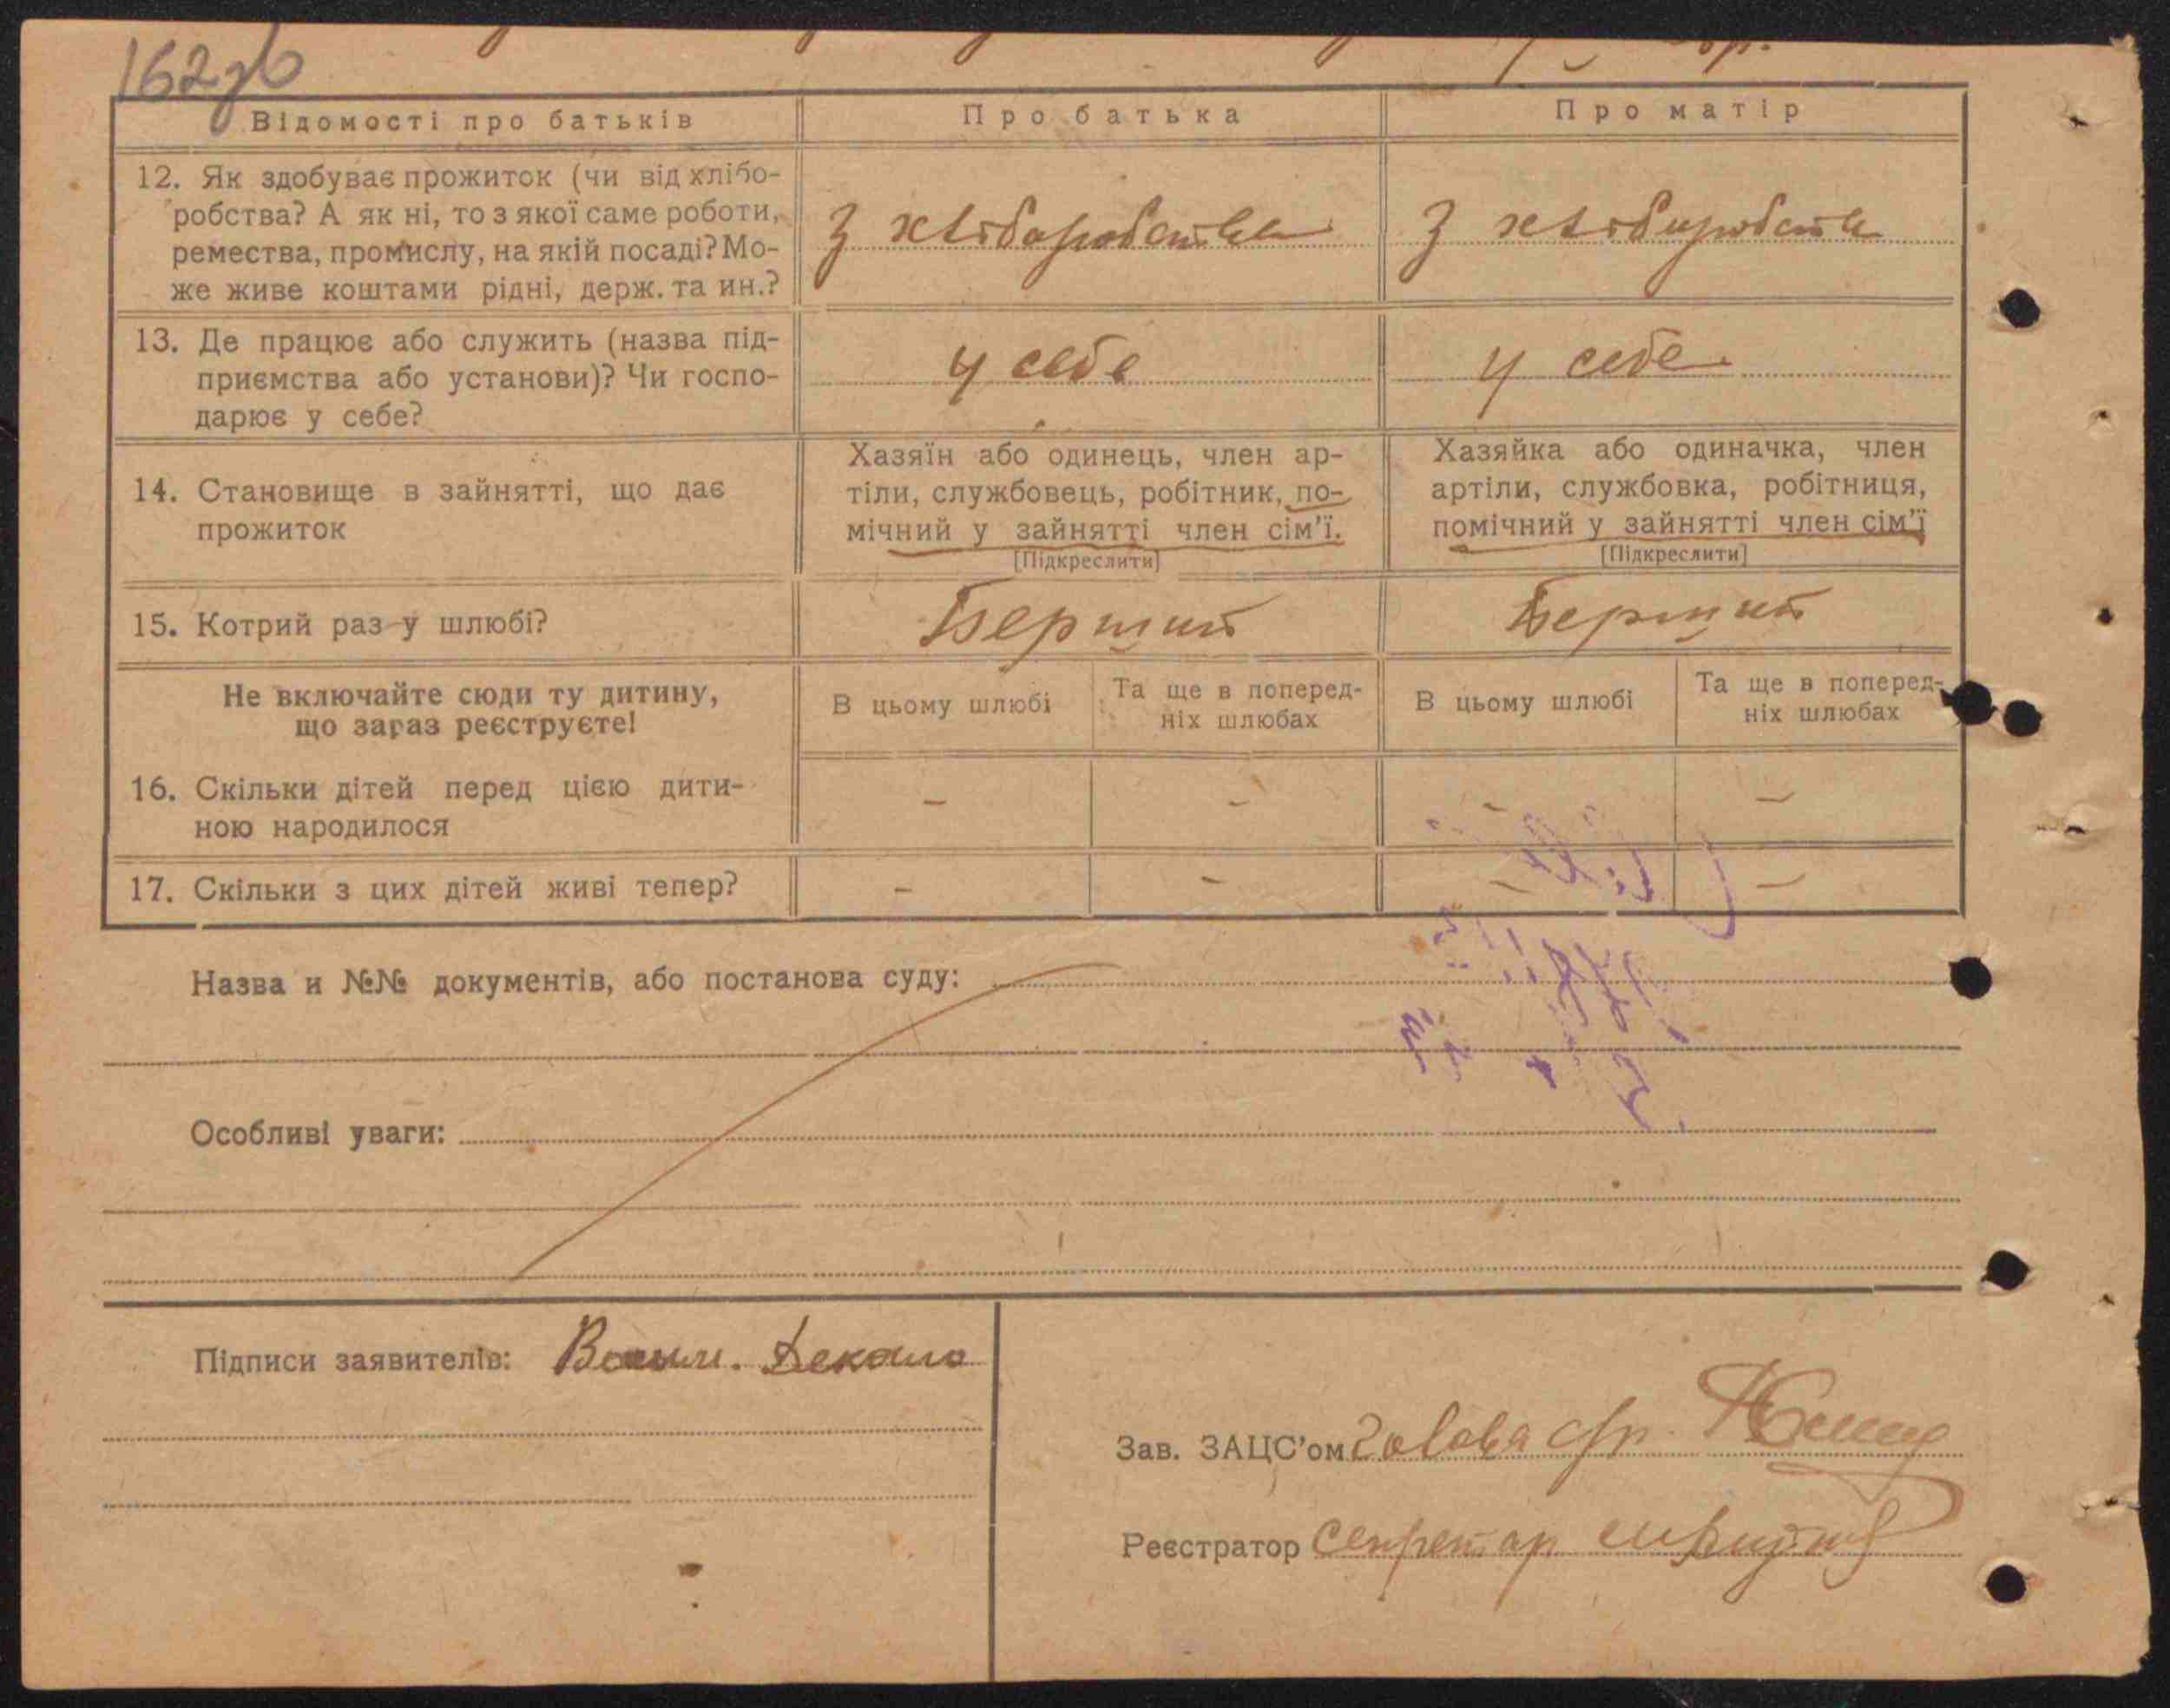 162зв
Відомості про батьків
Про батька
Про матір
12. Як здобуває прожиток (чи від хлібо-
робства? А як ні, то з якої саме роботи,
ремества, промислу, на якій посаді? Мо-
же живе коштами рідні, держ. та ин.?
З хліборобства
З хліборобства
13. Де працює або служить (назва під-
приємства або установи)? Чи госпо-
дарює у себе?
у себе
у себе
14. Становище в зайнятті, що дає
прожиток
Хазяїн або одинець, член ар-
тіли, службовець, робітник, по-
мічний у зайнятті член сім'ї.
[Підкреслити]
Хазяйка або одиначка, член
артіли, службовка, робітниця,
помічний у зайнятті член сім'ї
[Підкреслити]
15. Котрий раз у шлюбі?
Перший
Перший
Не включайте сюди ту дитину,
що зараз реєструєте!
В цьому шлюбі
Та ще в поперед-
ніх шлюбах
В цьому шлюбі
Та ще в поперед-
ніх шлюбах
16. Скільки дітей перед цією дити-
ною народилося
–
–
–
–
17. Скільки з цих дітей живі тепер?
–
–
–
–
Назва и №№ документів, або постанова суду:
Особливі уваги:
Підписи заявителів: Декало
Зав. ЗАЦС'ом Голова с/р.
Реєстратор Секретар